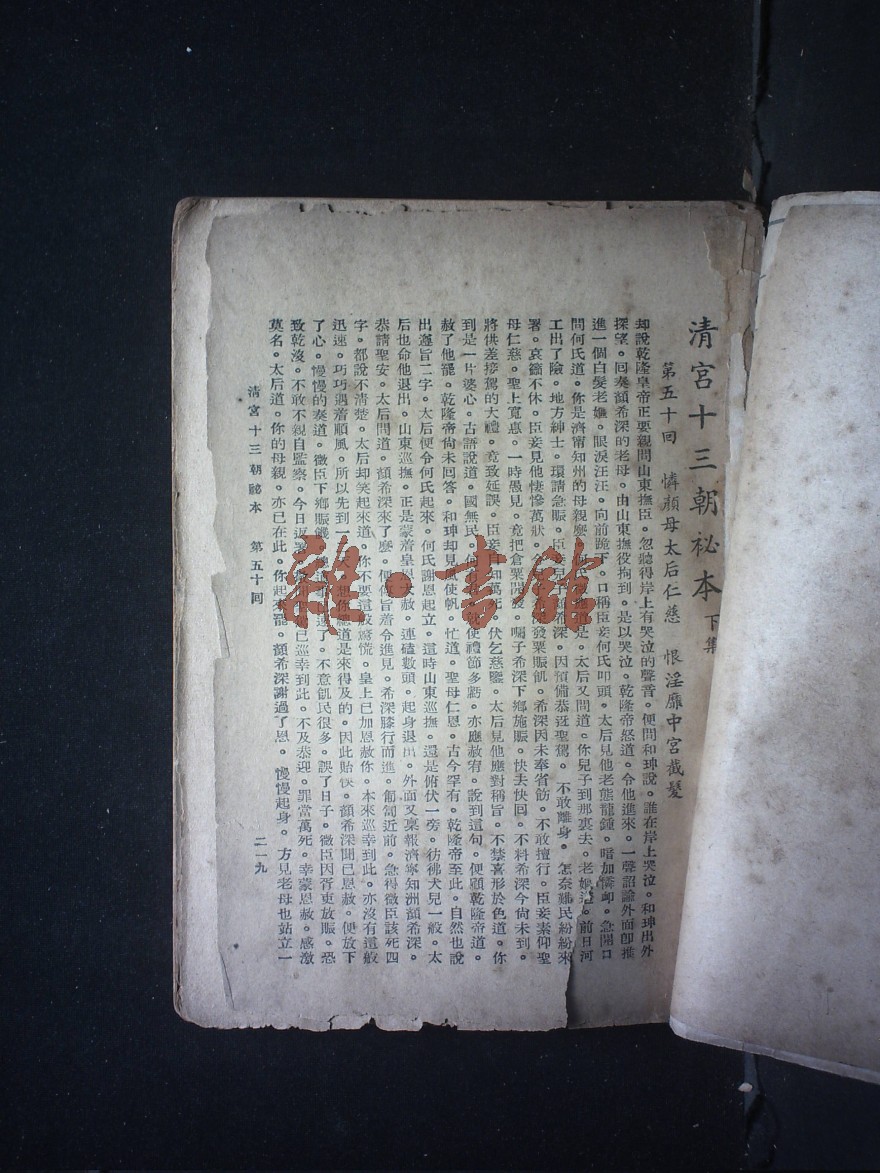 清宮十三朝祕本 下集
第五十回 憐顏母太后仁慈 恨淫靡中宮截髮
却說乾隆皇帝正要親問山東撫臣。忽聽得岸上有哭泣的聲音。便問和珅說。誰在岸上哭泣。和珅出外
探望。回奏顏希深的老母。由山東撫役拘到。是以哭泣。乾隆帝怒道。令他進來。一聲詔諭外面卽推
進一個白髮老嫗。眼淚汪汪。向前跪下。口稱臣妾何氏叩頭。太后見他老態龍鍾。暗加憐卹。急開口
問何氏道。你是濟甯知州的母親麼。是。太后又問道。你兒子到那裏去。老嫗道。前日河
工出了險。地方紳士。環請急賑。臣妾希深。因預備恭迓聖駕。不敢離身。怎奈難民紛紛來
署。哀籲不休。臣妾見他悽慘萬狀。發粟賑飢。希深因未奉省飭。不敢擅行。臣妾素仰聖
母仁慈。聖上寬惠。一時愚見。竟把倉粟開發。囑子希深下鄉施賑。快去快回。不料希深今尙未到。
將供差接駕的大禮。竟致延誤。臣妾自知萬死。伏乞慈鑒。太后見他應對稱旨。不禁喜形於色道。你
到是一片婆心。古語說道。國無民。何使禮節多虧。亦應赦宥。說到這句。便顧乾隆帝道。
赦了他罷。乾隆帝尙未回答。和珅却見風使帆。忙道。聖母仁恩。古今罕有。乾隆帝至此。自然也說
出遵旨二字。太后便令何氏起來。何氏謝恩起立。這時山東巡撫。還是俯伏一旁。彷彿犬兒一般。太
后也命他退出。山東巡撫。正是蒙着皇恩大赦。連磕數頭。起身退出。外面又稟報濟寧知洲顏希深。
恭請聖安。太后問道。顏希深來了麼。便傳旨着令進見。希深膝行而進。匍匐近前。急得微臣該死四
字。都說不清楚。太后却笑起來道。你不要這般驚慌。皇上已加恩赦你。本來巡幸到此。亦沒有這般
迅速。巧巧遇着順風。所以先到一天。想你總道是來得及的。因此貽悞。顏希深聞已恩赦。便放下
了心。慢慢的奏道。微臣下鄉賑饑。不意飢民很多。誤了日子。微臣因胥吏放賑。恐
致乾沒。不敢不親自監察。今日返署。已巡幸到此。不及恭迎。罪當萬死。幸蒙恩赦。感激
莫名。太后道。你的母親。亦已在此。你起來罷。顏希深謝過了恩。慢慢起身。方見老母也站立一
清宮十三朝祕本 第五十回 二一九
雜·書館